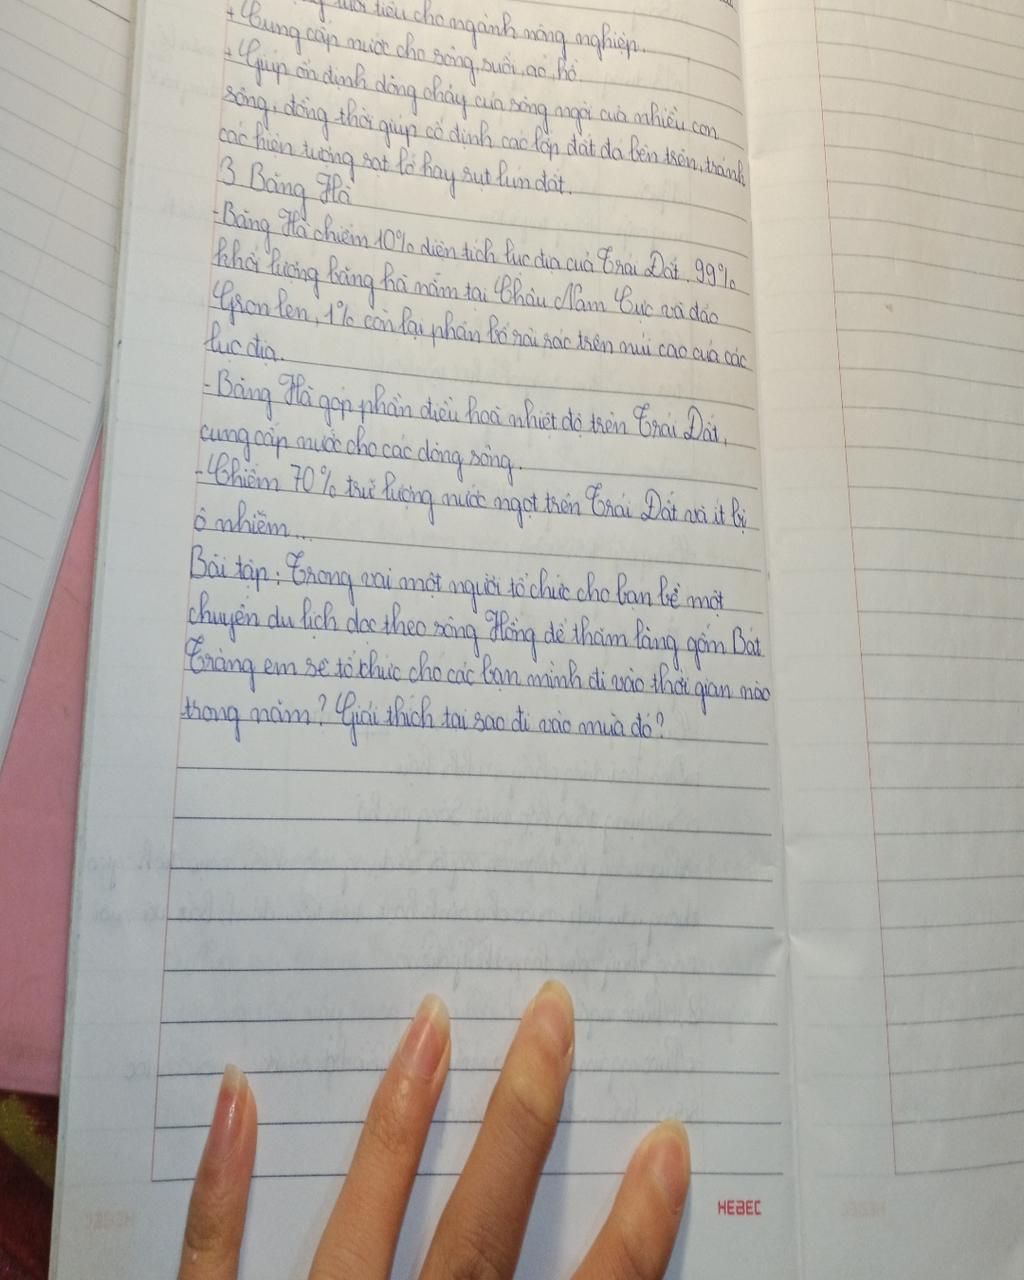 tưới tiêu cho ngành nông nghiệp.
+ Cung cấp nước cho sông, suối, ao, hồ
+ Giúp ổn định dòng chảy của sông ngòi của nhiều con
sông, đồng thời giúp cố định các lớp đất đá bên trên, tránh
các hiện tượng sạt lở hay sụt lún đất.
3 Băng Hà
- Băng Hà chiếm 10% diện tích lục địa của Trái Đất, 99%
khối lượng băng hà nằm tại Châu Nam Cực và đảo
Grơn len, 1% còn lại phân bố rải rác trên núi cao của các
lục địa.
- Băng Hà góp phần điều hoà nhiệt độ trên Trái Đất,
cung cấp nước cho các dòng sông.
- Chiếm 70% trữ lượng nước ngọt trên Trái Đất và ít bị
ô nhiễm...
Bài tập: Trong vai một người tổ chức cho bạn bè một
chuyến du lịch dọc theo sông Hồng để thăm làng gốm Bát
Tràng em sẽ tổ chức cho các bạn mình đi vào thời gian nào
trong năm? Giải thích tại sao đi vào mùa đó?
HEBEC